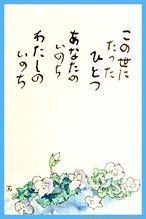 この世に
たった
ひとつ
あなたの
いのち
わたしの
いのち